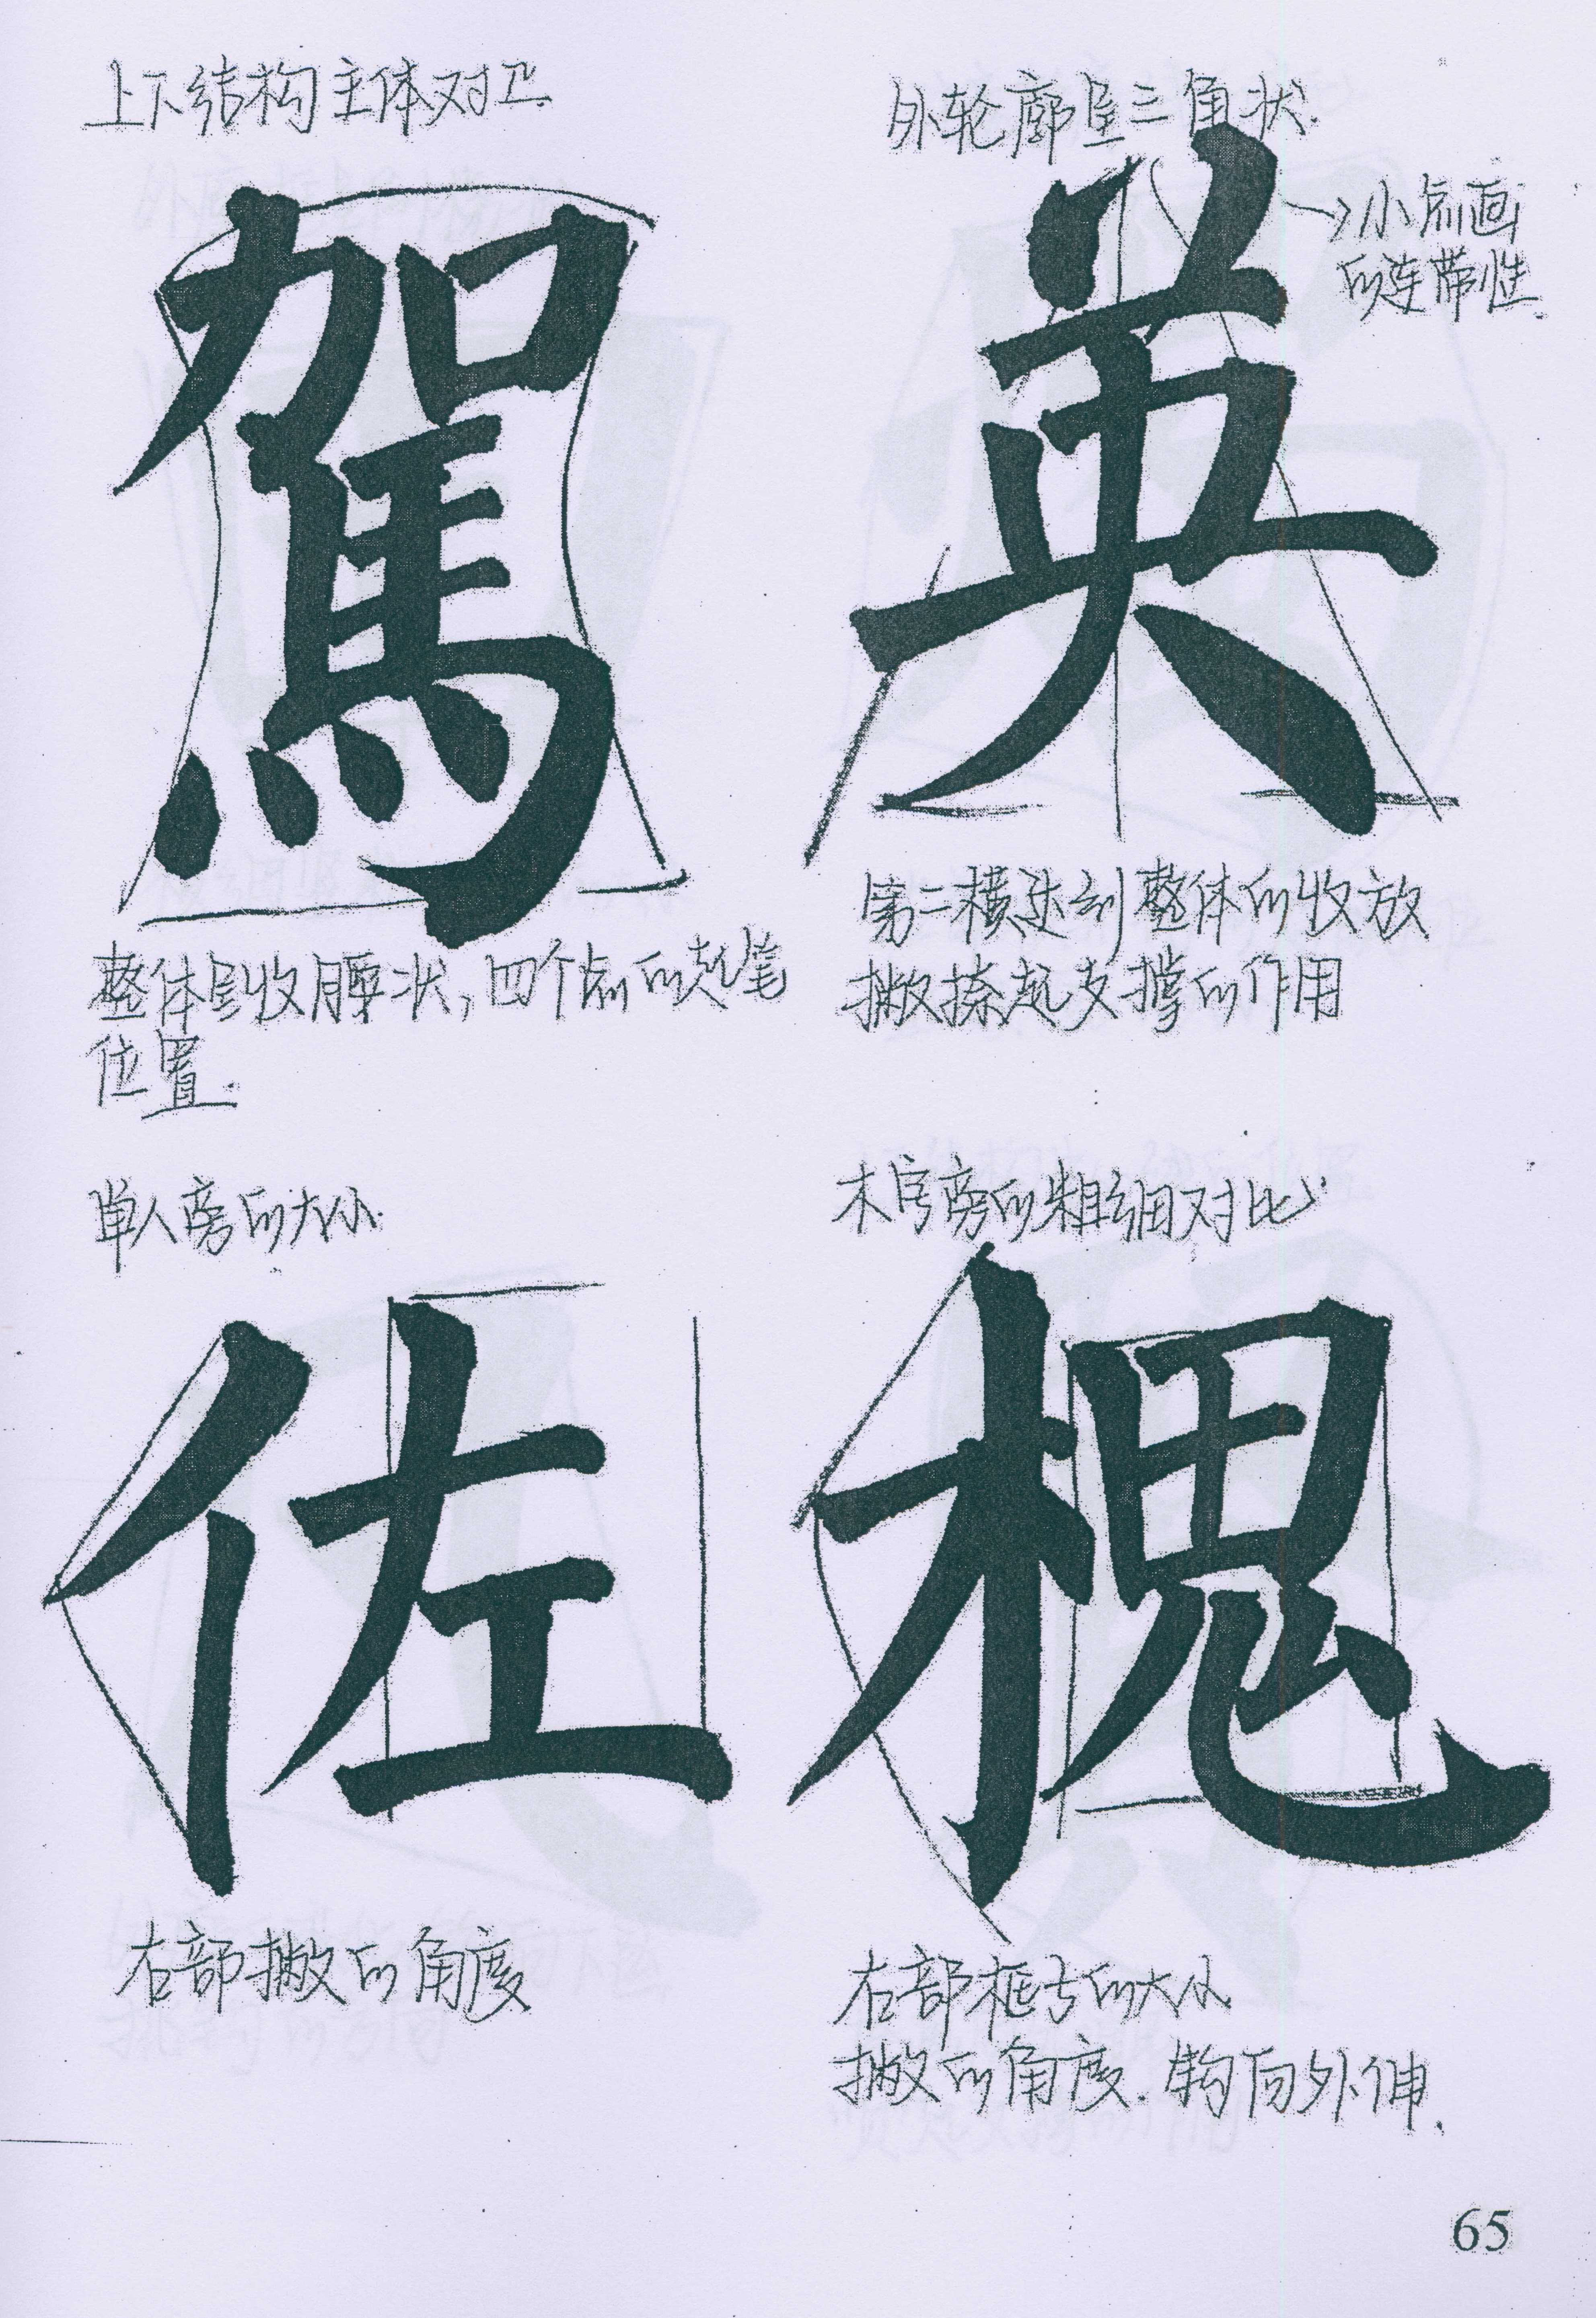 上下结构主体对正.
駕
整体呈收腰状，四个点的起笔
位置.
外轮廓呈三角状.
→小点画
的连带性.
英
第二横达到整体的收放
撇捺起支撑的作用
单人旁的大小.
佐
右部撇的角度
木字旁的粗细对比.
槐
右部框与的大小
撇的角度.钩向外伸.
65